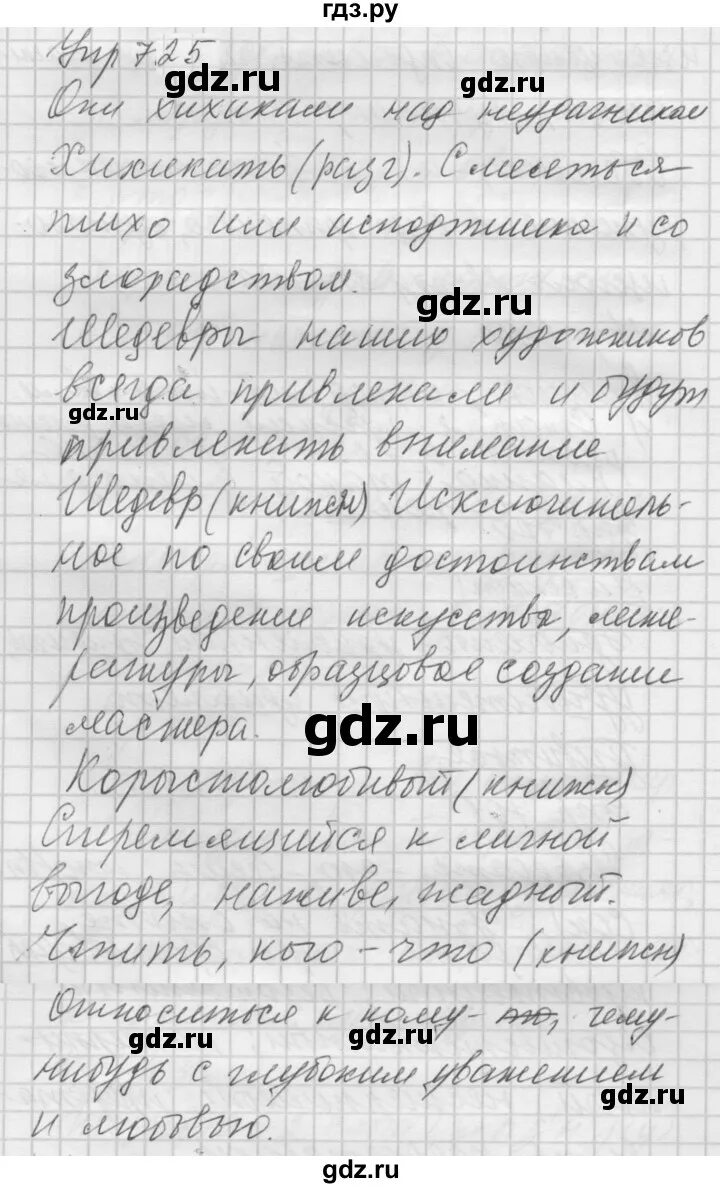 гдз.ру
Упр 725
gdz.ru
gdz.ru
Они хихикали над неудачником
Хихикать (разг). Смеяться
тихо или исподтишка и со
злорадством.
gdz.ru
Шедевры наших художников
всегда привлекали и будут
gdz.ru
привлекать внимание
Шедевр (книжн) Исключитель-
ное по своим достоинствам
произведение искусства, лите-
ратуры, образцовое создание
мастера.
gdz.ru
Корыстолюбивый (книжн)
Стремящийся к личной
выгоде, наживе, жадный.
Чтить, кого-что (книжн)
Относиться к кому-, чему-
gdz.ru
gdz.ru
нибудь с глубоким уважением
gdz.ru
и любовью.
gdz.ru